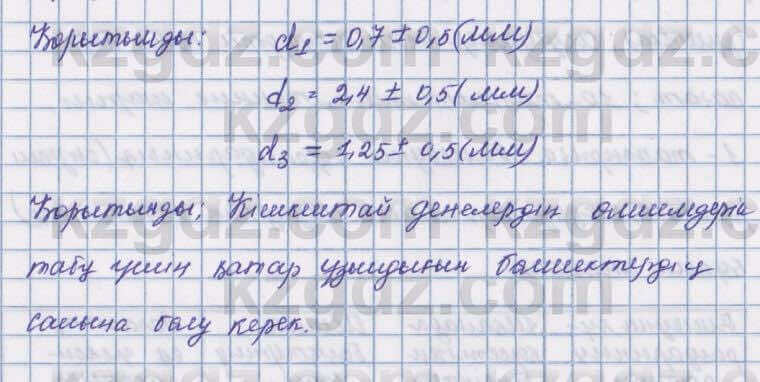 Қорытынды: d₁ = 0,7 ± 0,5 (мм)
d₂ = 2,4 ± 0,5 (мм)
d₃ = 1,25 ± 0,5 (мм)
Қорытынды; Кішкентай денелердің өлшемдерін
табу үшін қатар ұзындығын бөлшектердің
санына бөлу керек.
kzgdz.com